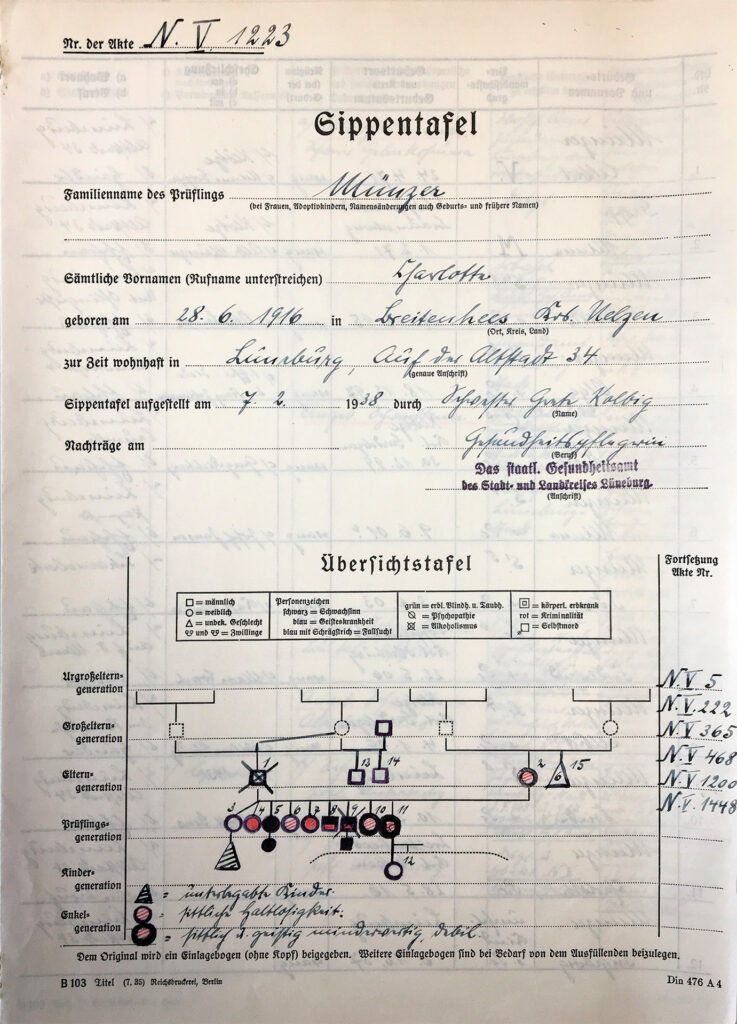 Nr. der Akte N. V. 1223
Sippentafel
Familienname des Prüflings Münzer
(bei Frauen, Adoptivkindern, Namensänderungen auch Geburts- und frühere Namen)
Sämtliche Vornamen (Rufname unterstreichen) Charlotte
geboren am 28. 6. 1916 in Breitenhees Krs. Uelzen
(Ort, Kreis, Land)
zur Zeit wohnhaft in Lüneburg, Auf der Altstadt 34
(genaue Anschrift)
Sippentafel aufgestellt am 7. 2. 1938 durch Schwester Grete Kolbig
(Name)
Nachträge am Gesundheitspflegerin
(Beruf)
Das staatl. Gesundheitsamt
des Stadt- und Landkreises Lüneburg.
(Anschrift)
Übersichtstafel
Fortsetzung
Akte Nr.
□ = männlich
○ = weiblich
△ = unbek. Geschlecht
und = Zwillinge
Personenzeichen
schwarz = Schwachsinn
blau = Geisteskrankheit
blau mit Schrägstrich = Fallsucht
grün = erbl. Blindh. u. Taubh.
= Psychopathie
= Alkoholismus
= körperl. erbkrank
rot = Kriminalität
= Selbstmord
Urgroßeltern-
generation
N.V 5
N.V. 222
Großeltern-
generation
N.V 365
N.V 468
Eltern-
generation
1 13 14 2 6 15
N.V 1200
N.V. 1448
Prüflings-
generation
3 4 5 6 7 8 9 10 11
12
Kinder-
generation
= unterbegabte Kinder.
Enkel-
generation
= sittliche Haltlosigkeit.
= sittlich u. geistig minderwertig, debil.
Dem Original wird ein Einlagebogen (ohne Kopf) beigegeben. Weitere Einlagebogen sind bei Bedarf von dem Ausfüllenden beizulegen.
B 103 Titel (7, 35) Reichsdruckerei, Berlin
Din 476 A 4